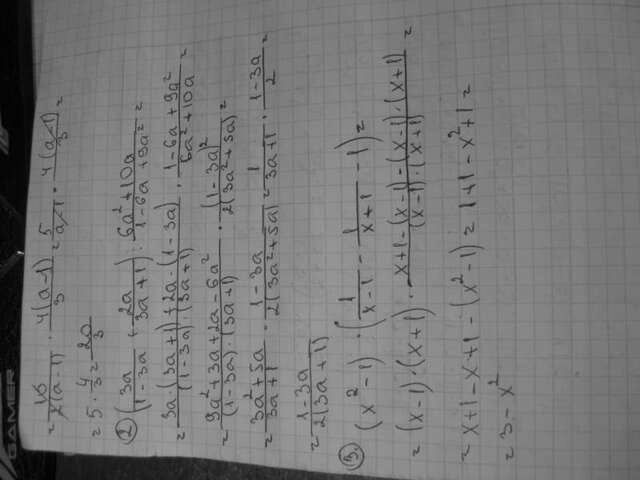 = 10/2(a-1) · 4(a-1)/3 = 5/a-1 · 4(a-1)/3 =
= 5 · 4/3 = 20/3
2) (3a/1-3a + 2a/3a+1) : 6a²+10a/1-6a+9a² =
= 3a·(3a+1)+2a·(1-3a)/(1-3a)·(3a+1) · 1-6a+9a²/6a²+10a =
= 9a²+3a+2a-6a²/(1-3a)·(3a+1) · (1-3a)²/2(3a²+5a) =
= 3a²+5a/3a+1 · 1-3a/2(3a²+5a) = 1/3a+1 · 1-3a/2 =
= 1-3a/2(3a+1)
3) (x²-1) · (1/x-1 - 1/x+1 - 1) =
= (x-1)·(x+1) · x+1-(x-1)-(x-1)·(x+1)/(x-1)·(x+1) =
= x+1-x+1-(x²-1) = 1+1-x²+1 =
= 3-x²
GAMER